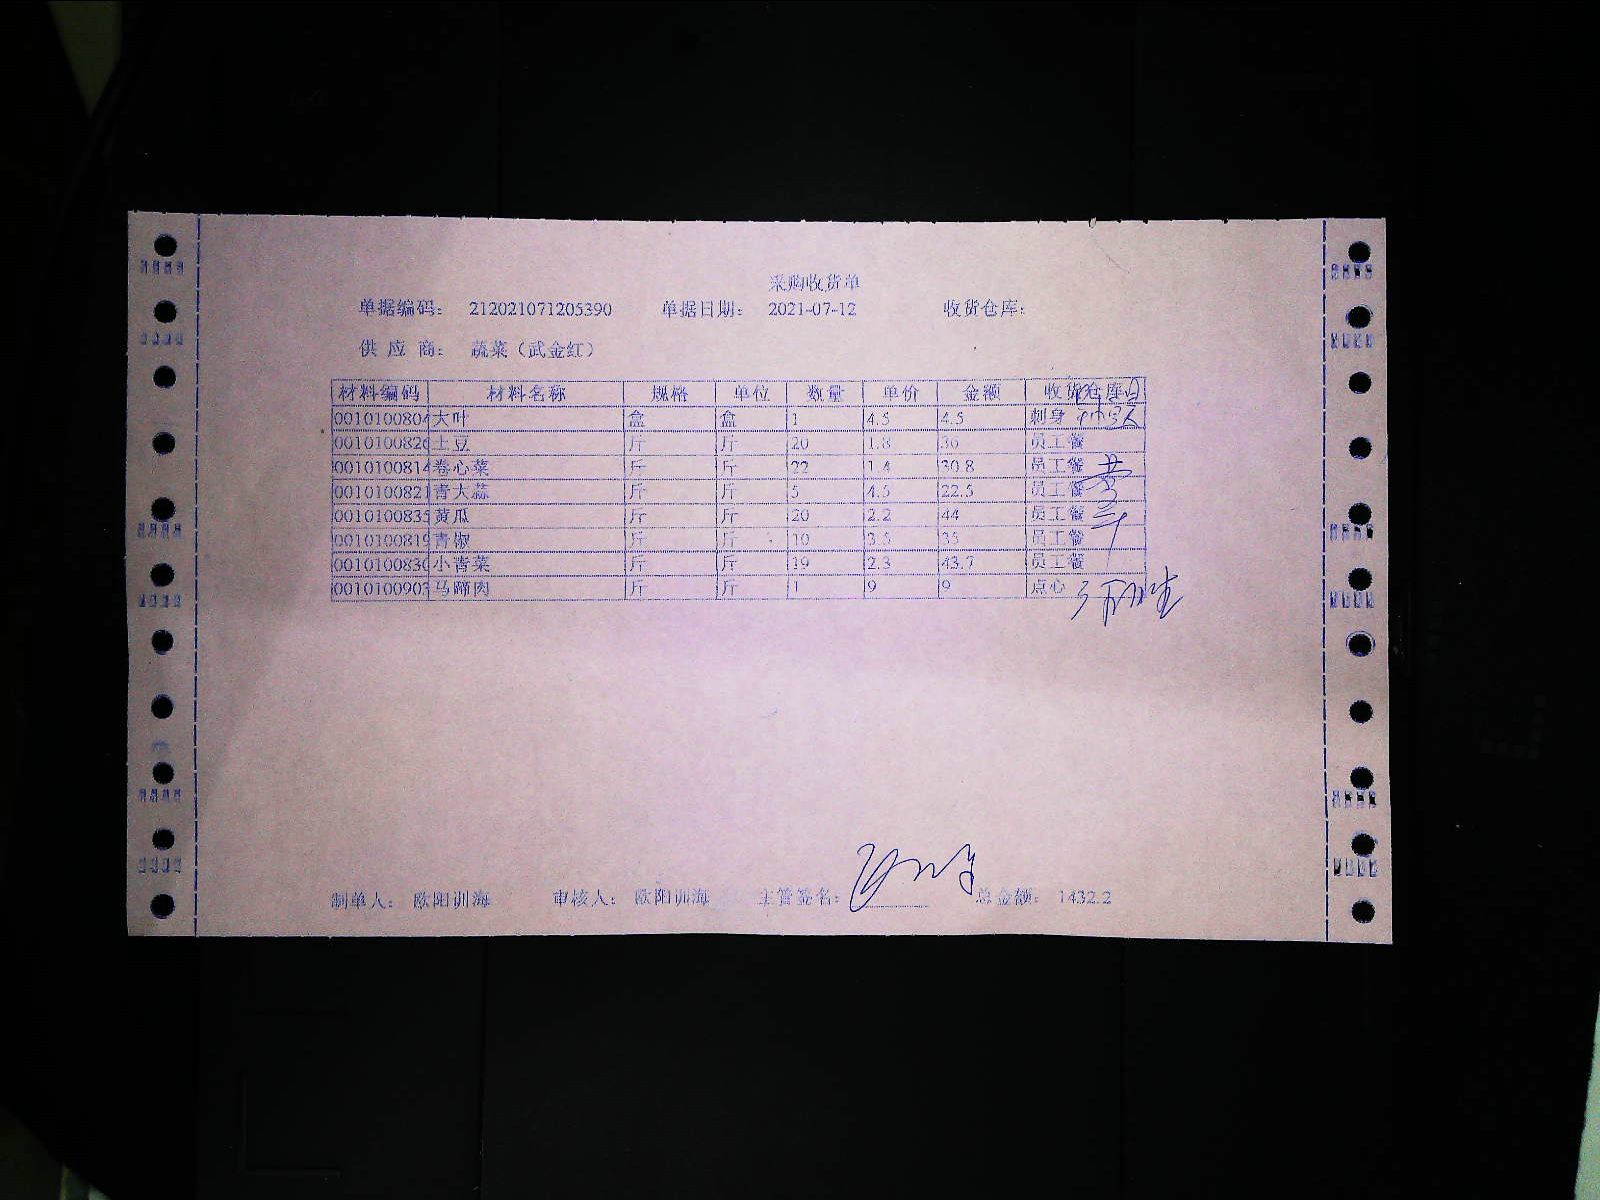 采购收货单
单据编码： 212021071205390 单据日期： 2021-07-12 收货仓库：
供 应 商： 蔬菜（武金红）
材料编码 材料名称 规格 单位 数量 单价 金额 收货仓库
0010100804 大叶 盒 盒 1 4.5 4.5 刺身
0010100826 土豆 斤 斤 20 1.8 36 员工餐
0010100814 卷心菜 斤 斤 22 1.4 30.8 员工餐
0010100821 青大蒜 斤 斤 5 4.5 22.5 员工餐
0010100835 黄瓜 斤 斤 20 2.2 44 员工餐
0010100819 青椒 斤 斤 10 3.5 35 员工餐
0010100830 小青菜 斤 斤 19 2.3 43.7 员工餐
0010100903 马蹄肉 斤 斤 1 9 9 点心
制单人： 欧阳训海 审核人： 欧阳训海 主管签名： 总金额： 1432.2